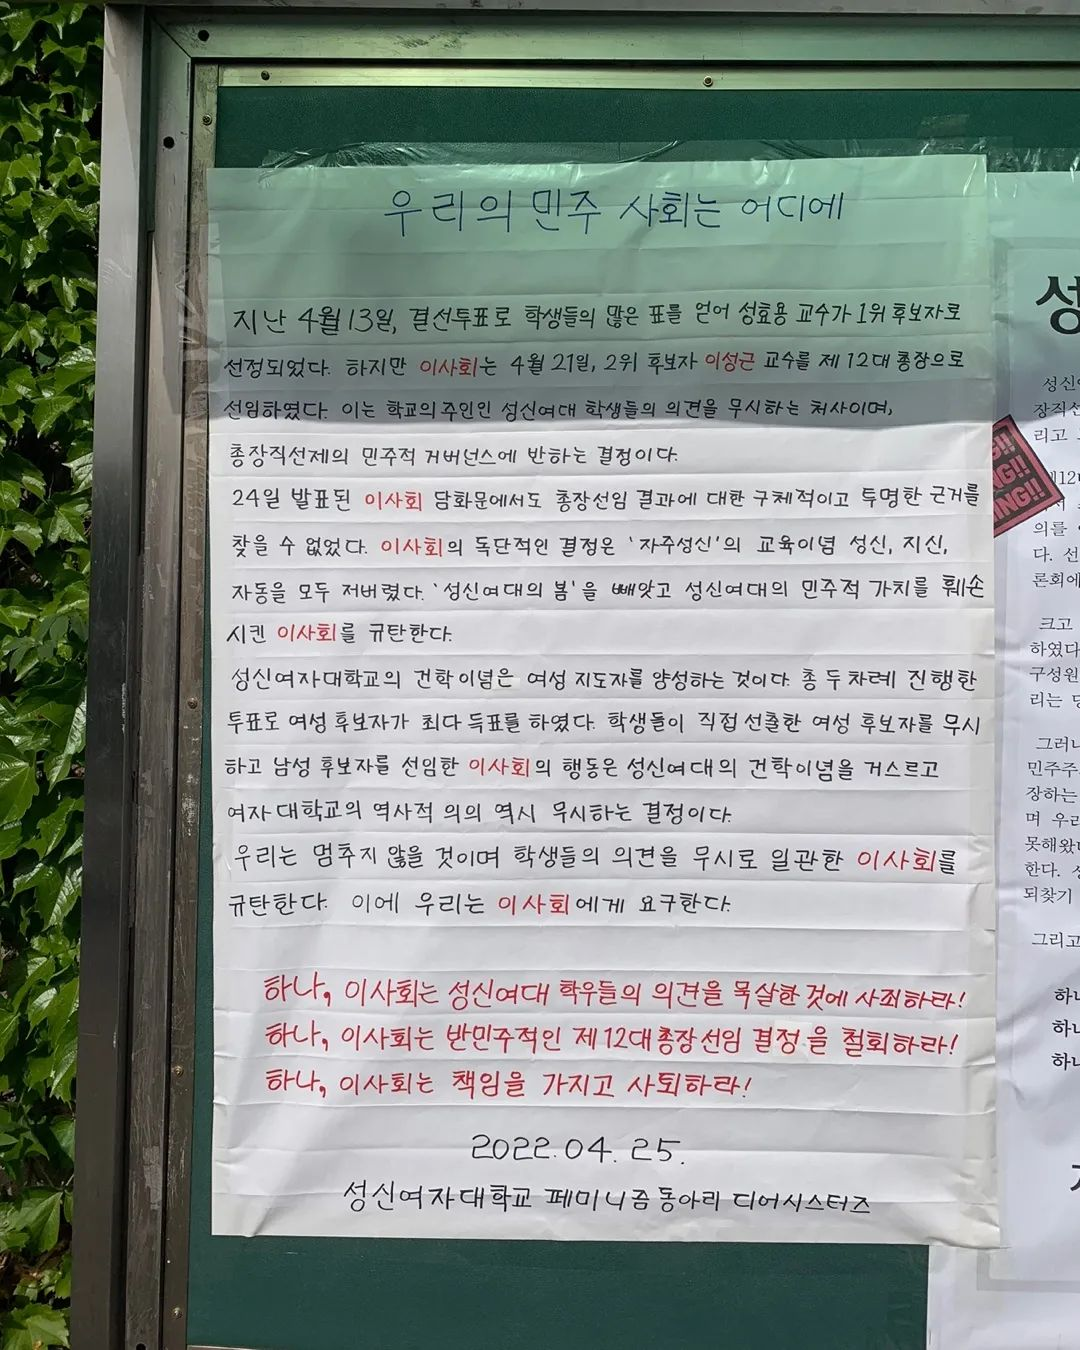 우리의 민주 사회는 어디에
지난 4월 13일, 결선투표로 학생들의 많은 표를 얻어 성효용 교수가 1위 후보자로
선정되었다. 하지만 이사회는 4월 21일, 2위 후보자 이성근 교수를 제 12대 총장으로
선임하였다. 이는 학교의 주인인 성신여대 학생들의 의견을 무시하는 처사이며,
총장직선제의 민주적 거버넌스에 반하는 결정이다.
24일 발표된 이사회 담화문에서도 총장선임 결과에 대한 구체적이고 투명한 근거를
찾을 수 없었다. 이사회의 독단적인 결정은 '자주성신'의 교육이념 성신, 지신,
자동을 모두 저버렸다. '성신여대의 봄'을 빼앗고 성신여대의 민주적 가치를 훼손
시킨 이사회를 규탄한다.
성신여자대학교의 건학이념은 여성 지도자를 양성하는 것이다. 총 두 차례 진행한
투표로 여성 후보자가 최다 득표를 하였다. 학생들이 직접 선출한 여성 후보자를 무시
하고 남성 후보자를 선임한 이사회의 행동은 성신여대의 건학이념을 거스르고
여자대학교의 역사적 의의 역시 무시하는 결정이다.
우리는 멈추지 않을 것이며 학생들의 의견을 무시로 일관한 이사회를
규탄한다. 이에 우리는 이사회에게 요구한다.
하나, 이사회는 성신여대 학우들의 의견을 묵살한 것에 사죄하라!
하나, 이사회는 반민주적인 제12대 총장선임 결정을 철회하라!
하나, 이사회는 책임을 가지고 사퇴하라!
2022.04.25.
성신여자대학교 페미니즘동아리 디어시스터즈
성
성신
장직선
리고
의를
다. 선
론회에
크고
하였다
구성원
리는
그러나
민주주
장하는
며 우리
못해왔
한다.
되찾기
그리고
하나
하나
하나